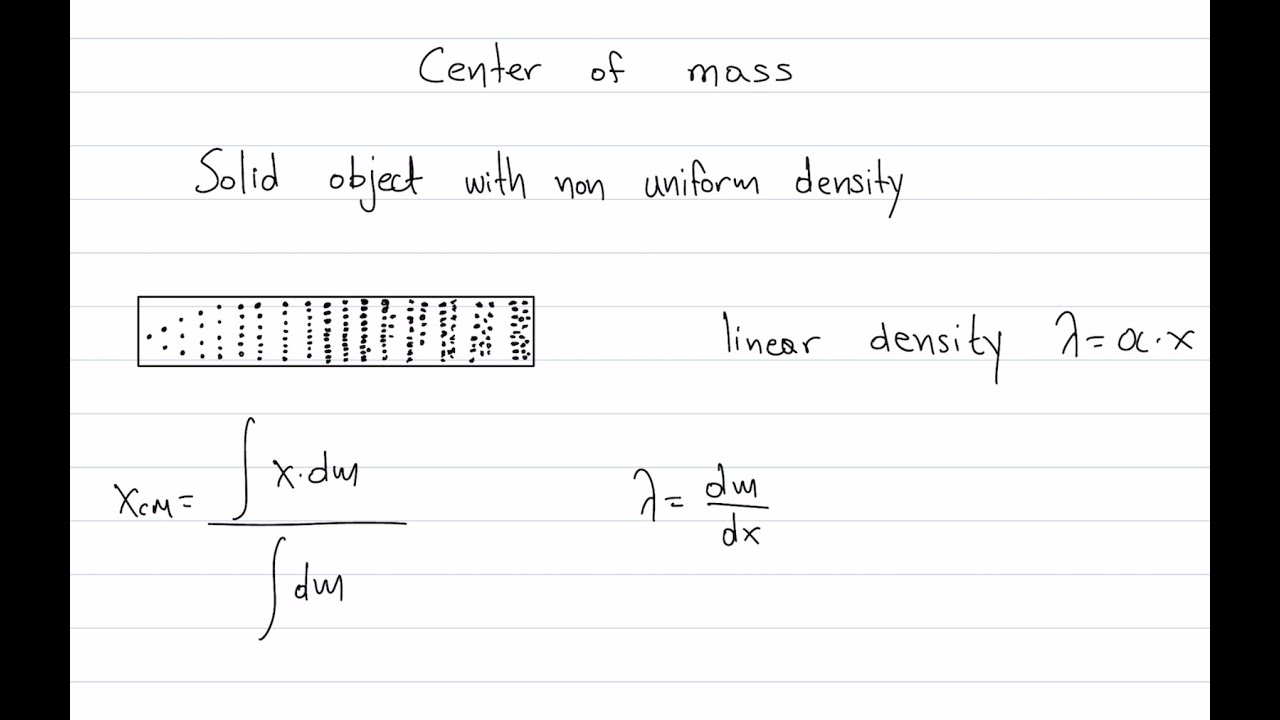 Center of mass
Solid object with non uniform density
linear density λ = α·x
x_CM = ∫ x·dm / ∫ dm
λ = dm/dx